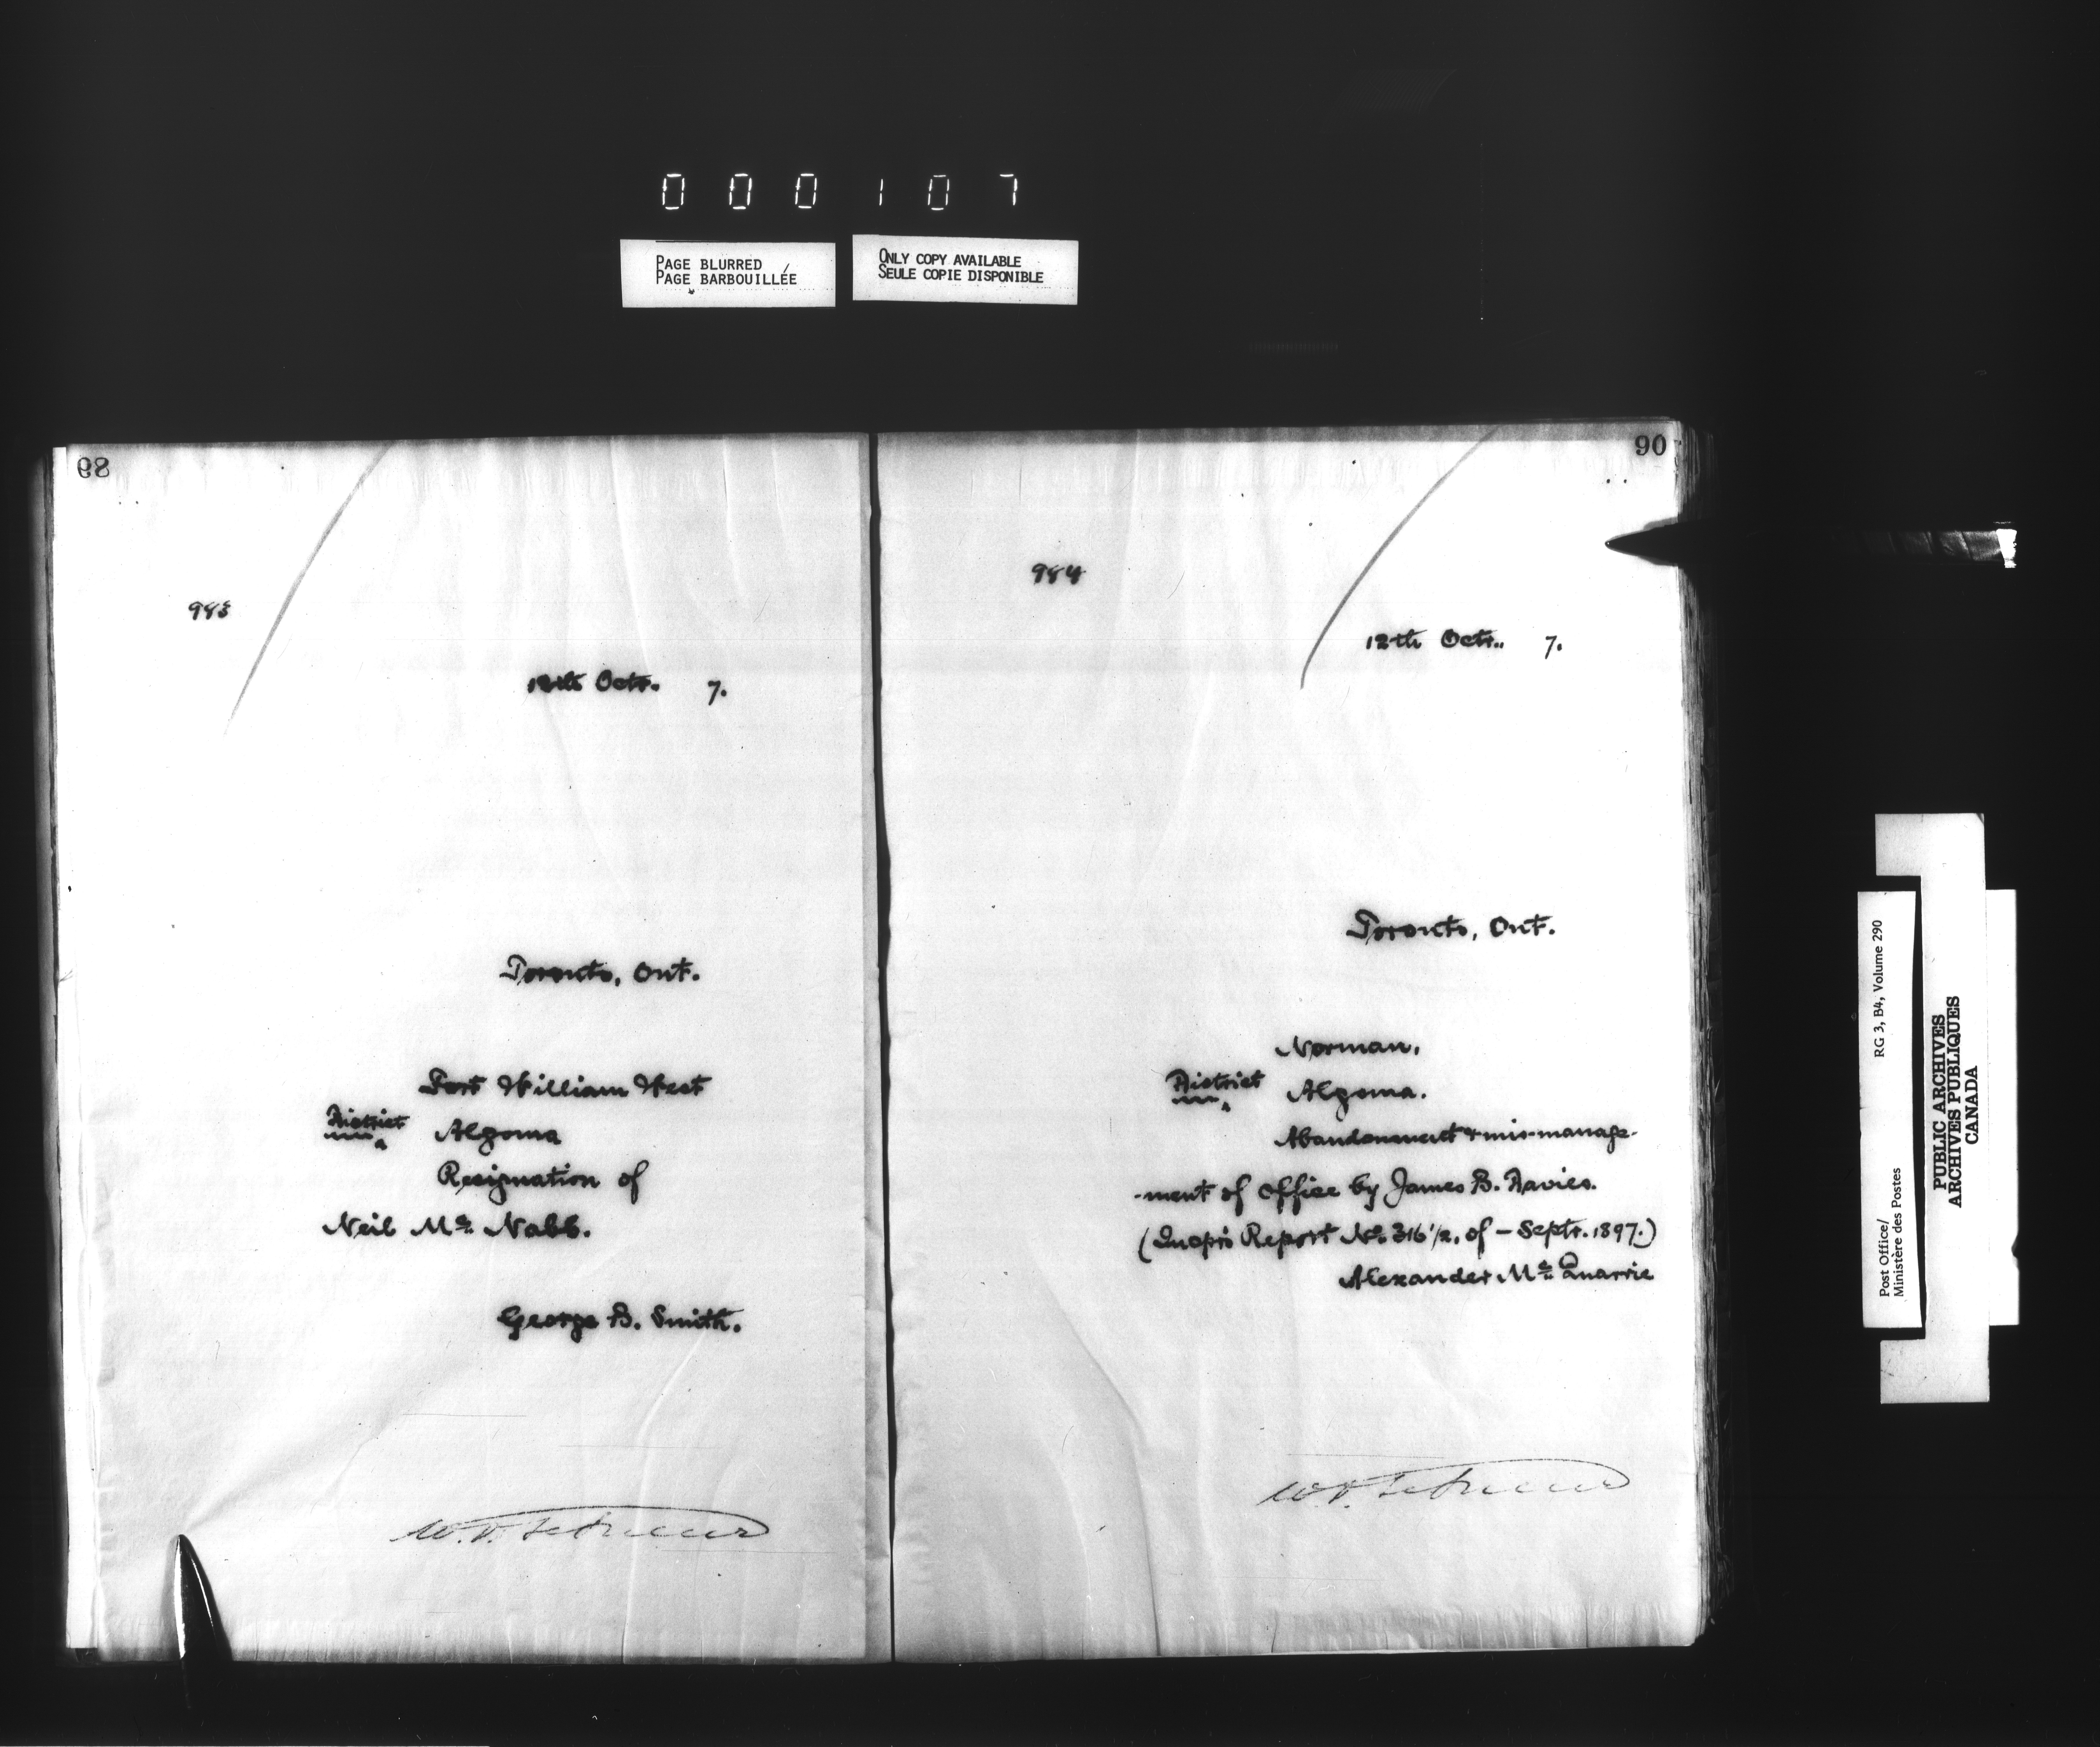 000107
PAGE BLURRED
PAGE BARBOUILLÉE
ONLY COPY AVAILABLE
SEULE COPIE DISPONIBLE
89
983
12th Octr. 7.
Toronto, Ont.
Fort William West
District
Algoma
Resignation of
Neil Mc Nabb.
George B. Smith.
90
984
12th Octr. 7.
Toronto, Ont.
Norman.
District
Algoma.
Abandonment & mis-manage-
-ment of office by James B. Davies.
(Inspr's Report No. 316 1/2, of – Septr. 1897.)
Alexander Mc Quarrie
Post Office/
Ministère des Postes
RG 3, B4, Volume 290
PUBLIC ARCHIVES
ARCHIVES PUBLIQUES
CANADA